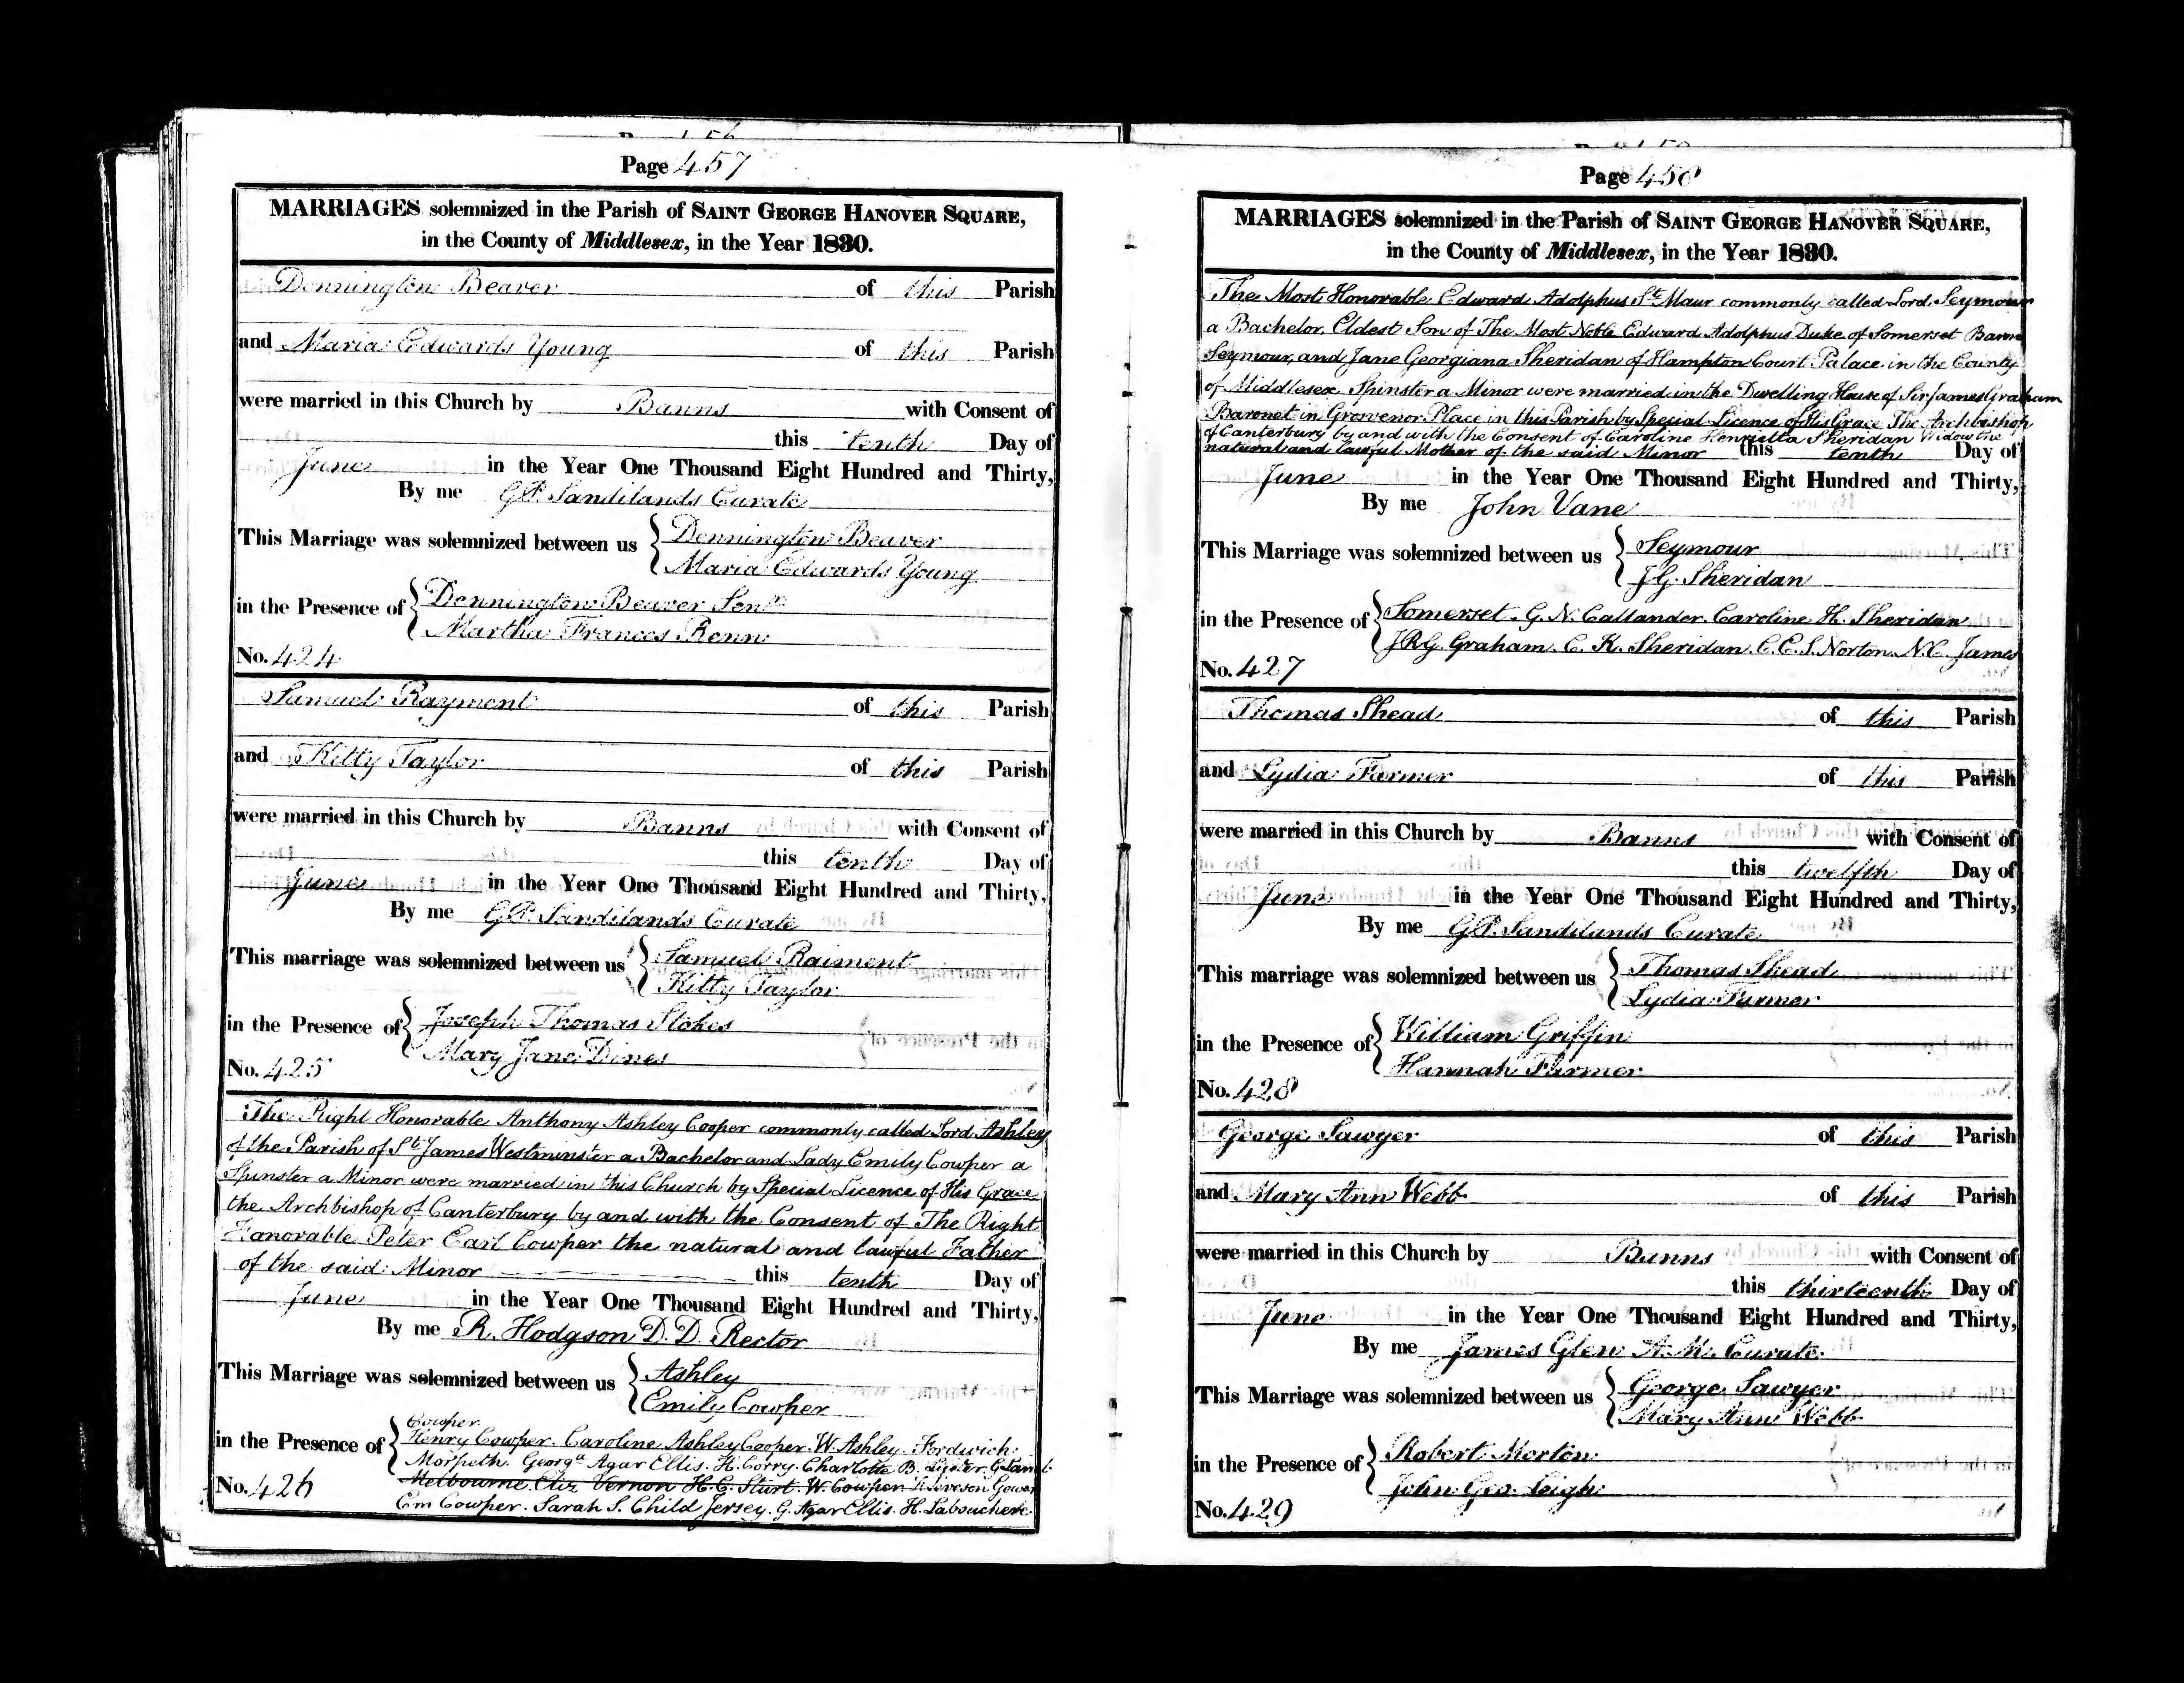 Page 457
MARRIAGES solemnized in the Parish of SAINT GEORGE HANOVER SQUARE,
in the County of Middlesex, in the Year 1830.
Dennington Beaver of this Parish
and Maria Edwards Young of this Parish
were married in this Church by Banns with Consent of
this tenth Day of
June in the Year One Thousand Eight Hundred and Thirty,
By me G.P. Sandilands Curate
This Marriage was solemnized between us { Dennington Beaver
Maria Edwards Young
in the Presence of { Dennington Beaver Senr
Martha Frances Renn
No. 424
Samuel Rayment of this Parish
and Kitty Taylor of this Parish
were married in this Church by Banns with Consent of
this tenth Day of
June in the Year One Thousand Eight Hundred and Thirty,
By me G.P. Sandilands Curate
This marriage was solemnized between us { Samuel Raiment
Kitty Taylor
in the Presence of { Joseph Thomas Stokes
Mary Jane Dines
No. 425
The Right Honorable Anthony Ashley Cooper commonly called Lord Ashley
of the Parish of St James Westminster a Bachelor and Lady Emily Cowper a
Spinster a Minor were married in this Church by Special Licence of His Grace
the Archbishop of Canterbury by and with the Consent of The Right
Honorable Peter Earl Cowper the natural and lawful Father
of the said Minor this tenth Day of
June in the Year One Thousand Eight Hundred and Thirty,
By me R. Hodgson D.D. Rector
This Marriage was solemnized between us { Ashley
Emily Cowper
Cowper
in the Presence of { Henry Cowper. Caroline Ashley Cooper. W. Ashley. Fordwich.
Morpeth. Georga Agar Ellis. H. Corry. Charlotte B. Lyster. G Lamb.
Melbourne Eliz Vernon H. C. Sturt. W. Cowper. Leveson Gower
No. 426
Em Cowper. Sarah S. Child Jersey. G. Agar Ellis. H. Labouchere
Page 458
MARRIAGES solemnized in the Parish of SAINT GEORGE HANOVER SQUARE,
in the County of Middlesex, in the Year 1830.
The Most Honorable Edward Adolphus St Maur commonly called Lord Seymour
a Bachelor, Eldest Son of The Most Noble Edward Adolphus Duke of Somerset Baron
Seymour, and Jane Georgiana Sheridan of Hampton Court Palace in the County
of Middlesex Spinster a Minor were married in the Dwelling House of Sir James Graham
Baronet in Grosvenor Place in this Parish by Special Licence of His Grace The Archbishop
of Canterbury by and with the Consent of Caroline Henrietta Sheridan Widow the
natural and lawful Mother of the said Minor this tenth Day of
June in the Year One Thousand Eight Hundred and Thirty,
By me John Vane
This Marriage was solemnized between us { Seymour
J.G. Sheridan
in the Presence of { Somerset. G. N. Callander. Caroline H. Sheridan
J.R.G. Graham. C. K. Sheridan. C.E.S. Norton. N.C. James
No. 427
Thomas Shead of this Parish
and Lydia Farmer of this Parish
were married in this Church by Banns with Consent of
this twelfth Day of
June in the Year One Thousand Eight Hundred and Thirty,
By me G.P. Sandilands Curate
This marriage was solemnized between us { Thomas Shead
Lydia Farmer
in the Presence of { William Griffin
Hannah Farmer
No. 428
George Sawyer of this Parish
and Mary Ann Webb of this Parish
were married in this Church by Banns with Consent of
this thirteenth Day of
June in the Year One Thousand Eight Hundred and Thirty,
By me James Glen A.M. Curate
This Marriage was solemnized between us { George Sawyer
Mary Ann Webb
in the Presence of { Robert Morton
John Geo. Leigh
No. 429